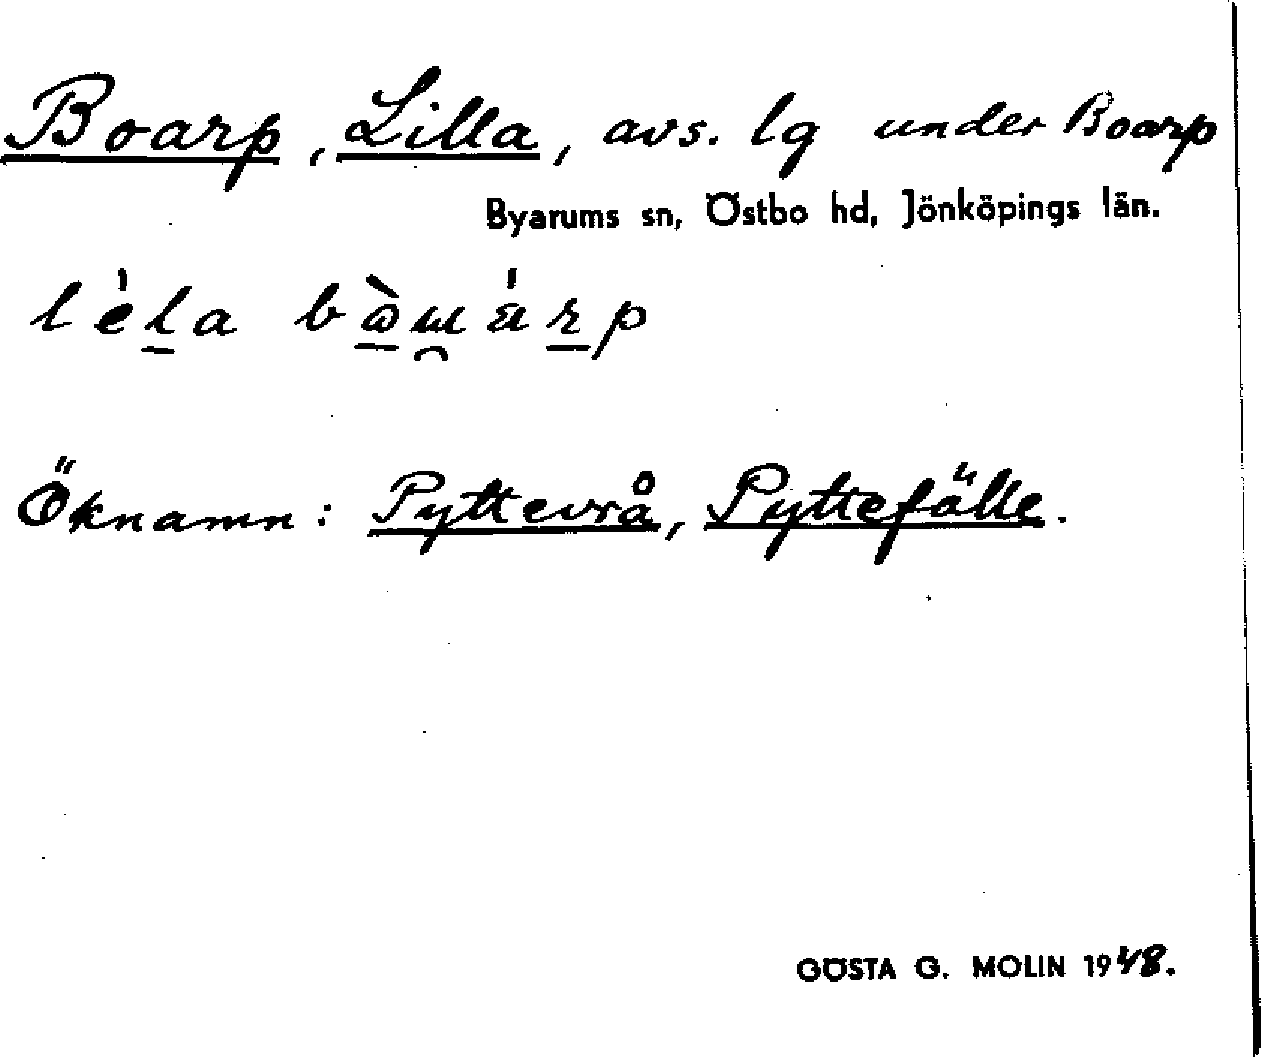 Boarp, Lilla, avs. lg under Boarp
Byarums sn, Östbo hd, Jönköpings län.
Öknamn: Pyttevrå, Pyttefälle.
GÖSTA G. MOLIN 1948.